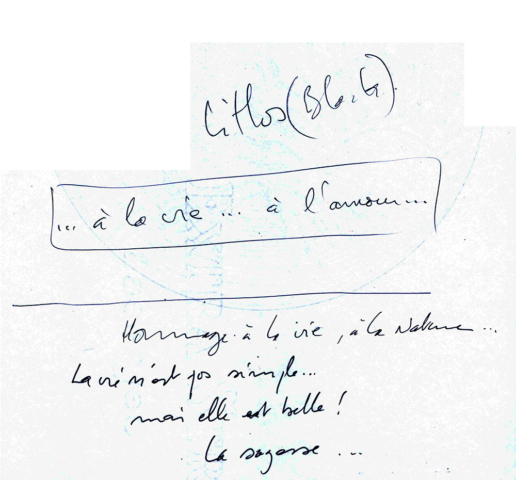 Lithos (Bla.G)
... à la vie ... à l'amour...
Hommage à la vie, à la Nature...
La vie n'est pas simple...
mais elle est belle !
La sagesse ...